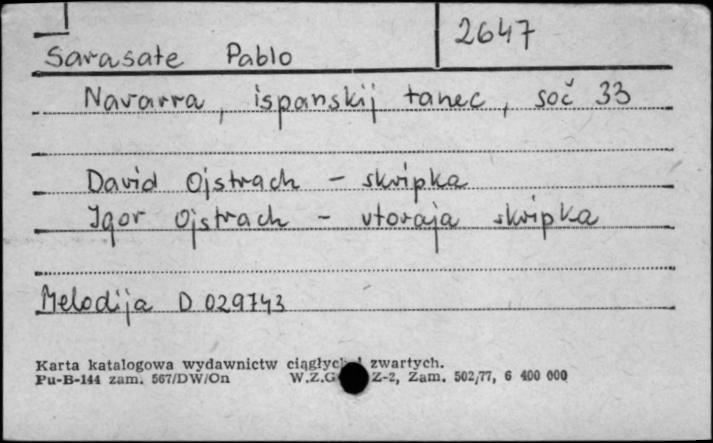 2647
Sarasate Pablo
Navarra, ispanskij tanec, soč 33
David Ojstrach - skripka
Igor Ojstrach - vtoraja skripka
Melodija D 029743
Karta katalogowa wydawnictw ciągłych i zwartych.
Pu-B-144 zam. 567/DW/On W.Z.G Z-2, Zam. 502/77, 6 400 000